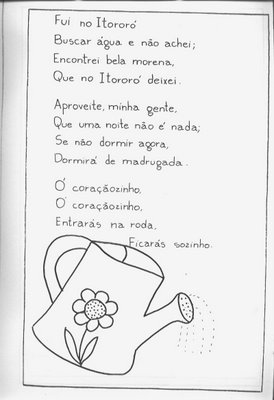 Fui no Itororó
Buscar água e não achei;
Encontrei bela morena,
Que no Itororó deixei.
Aproveite, minha gente,
Que uma noite não é nada;
Se não dormir agora,
Dormirá de madrugada.
Ó coraçãozinho,
Ó coraçãozinho,
Entrarás na roda,
Ficarás sozinho.